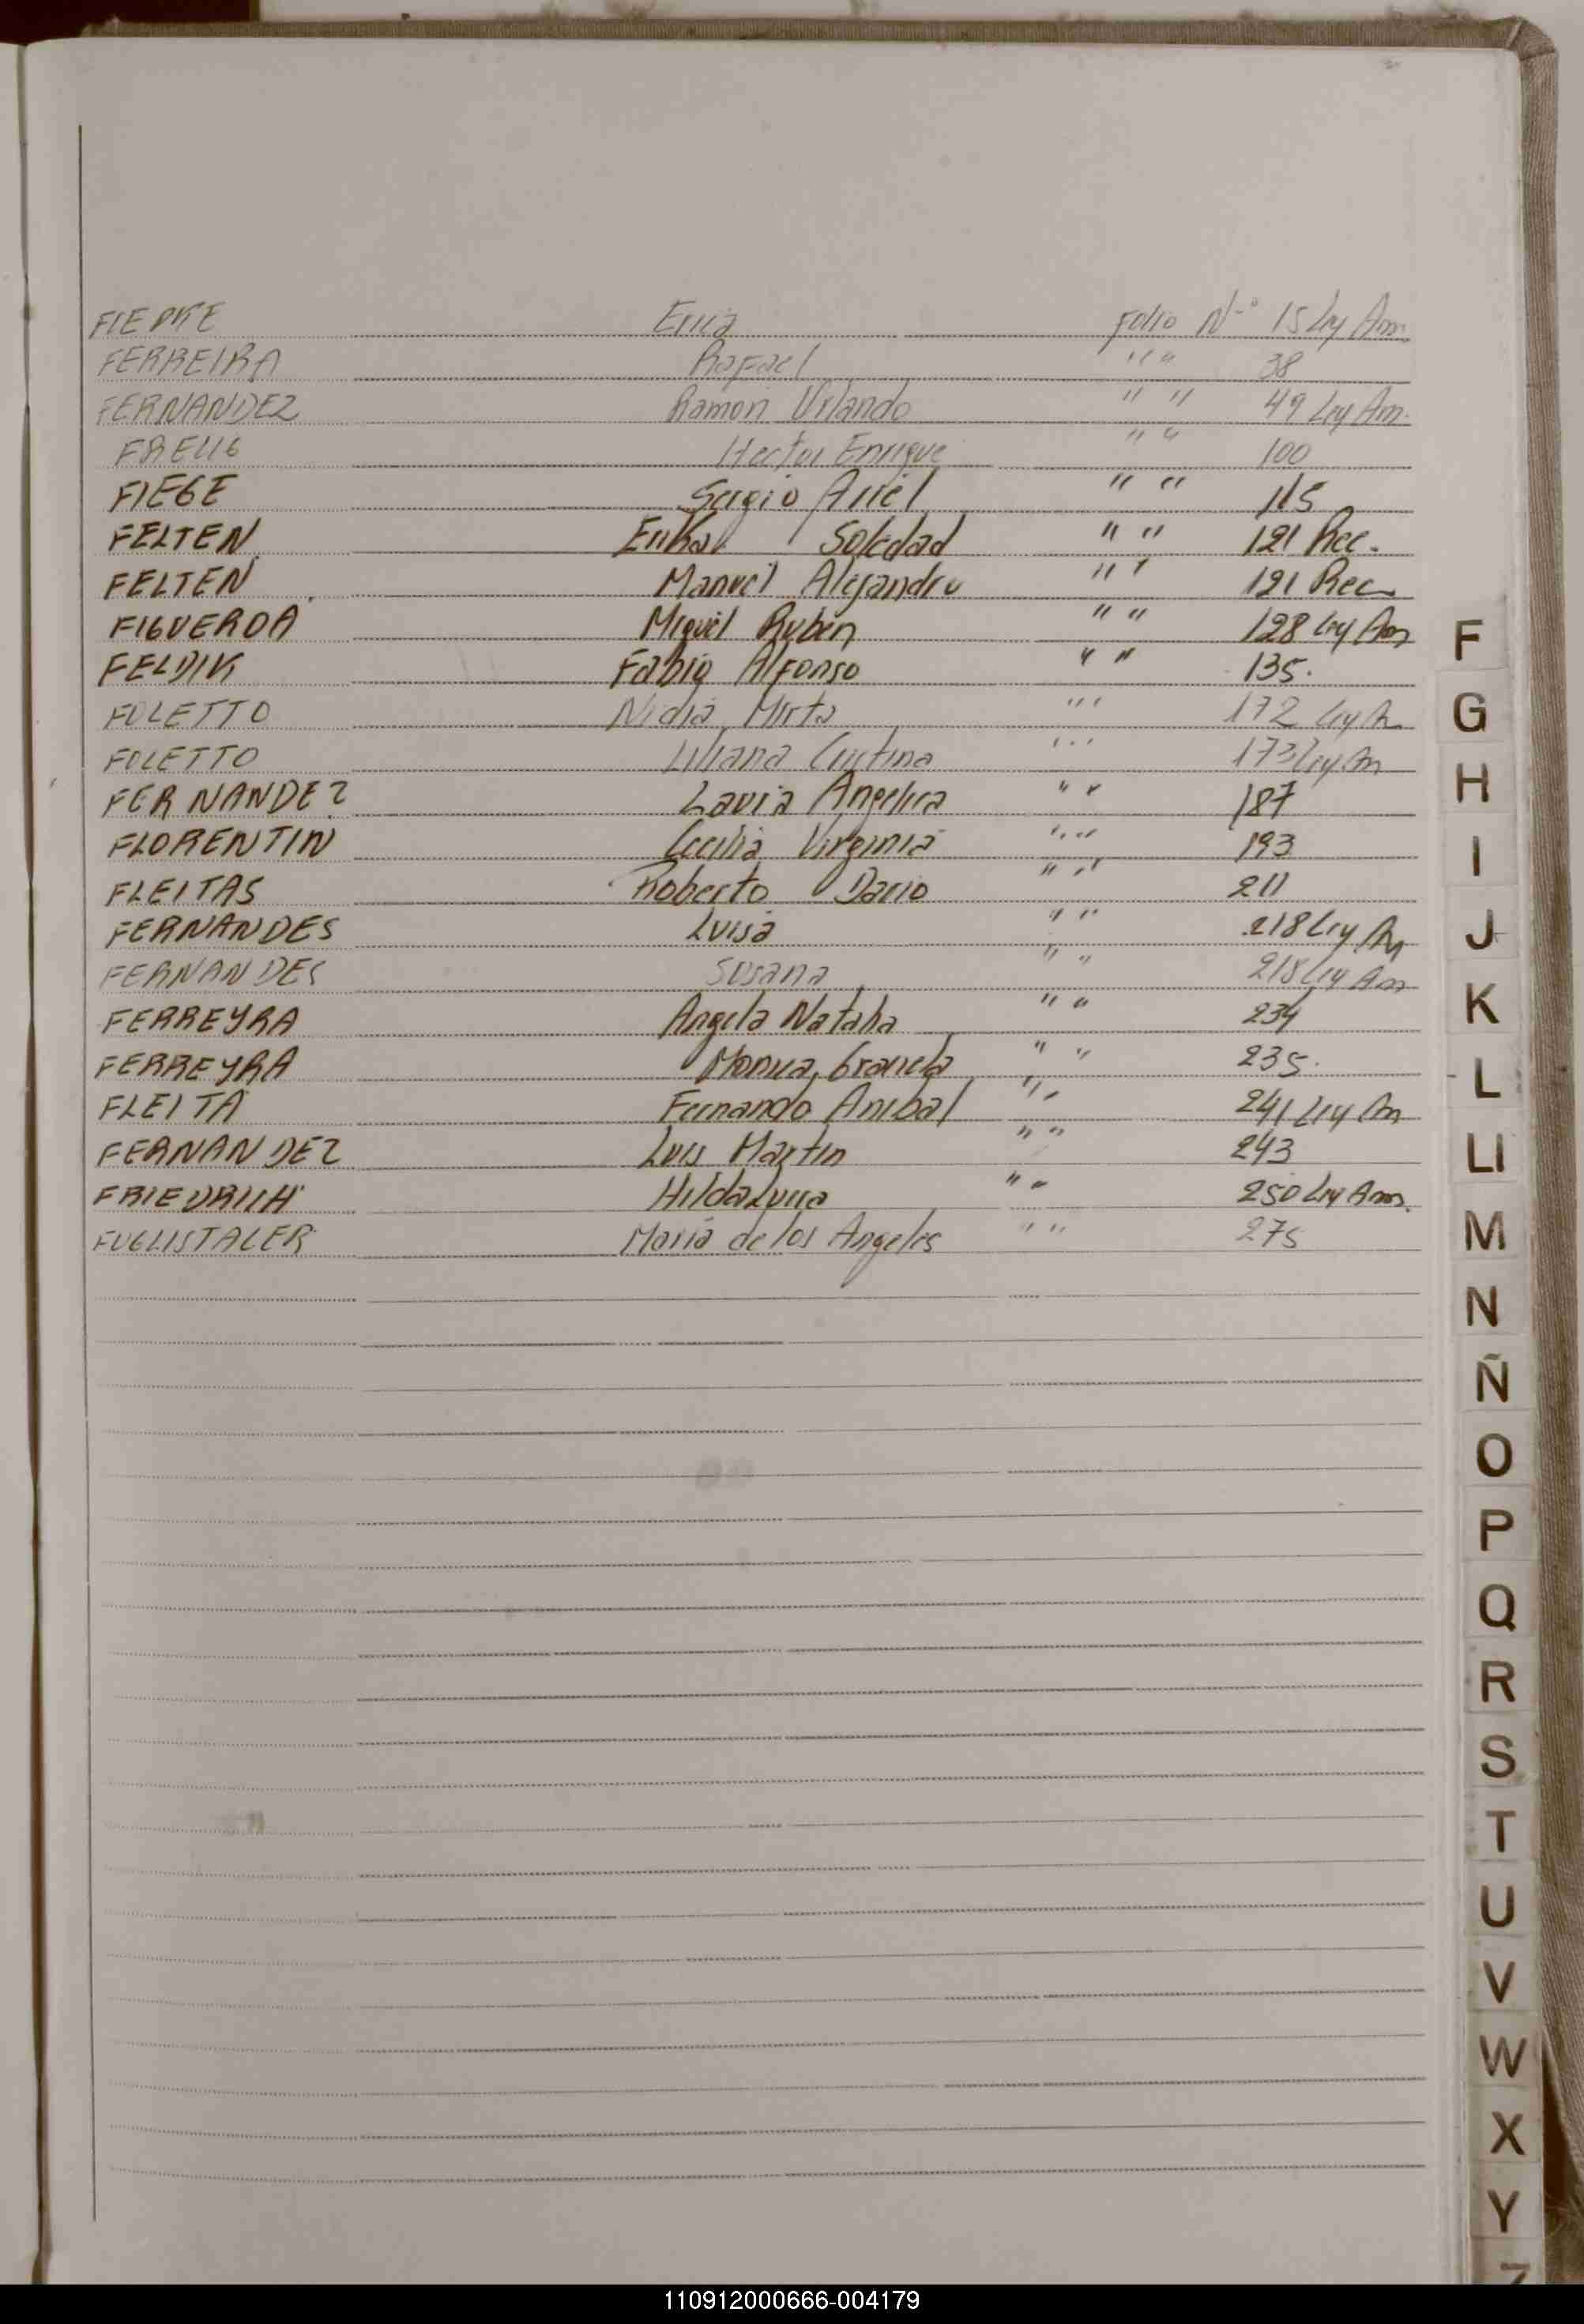 FIEPKE Erica Folio Nº 15 Ley Am.
FERREIRA Rafael " " 38
FERNANDEZ Ramon Orlando " " 49 Ley Am.
Hector Enrique " " 100
FIEGE Sergio Ariel " " 115
FELTEN Erika Soledad " " 121 Rec.
FELTEN Manuel Alejandro " " 121 Rec
FIGUEROA Miguel Rubén " " 128 Ley Am
FELDIK Fabio Alfonso " " 135.
FOLETTO Nidia Mirta " " 172 Ley A
FOLETTO Liliana Cristina " " 173 Ley Am
FERNANDEZ Lavia Angelica " " 187
FLORENTIN Cecilia Virginia " " 193
FLEITAS Roberto Dario " " 211
FERNANDES Luisa " " 218 Ley Am
FERNANDES Susana " " 218 Ley Am
FERREYRA Angela Natalia " " 234
FERREYRA Monica Graciela " " 235.
FLEITA Fernando Anibal " " 241 Ley Am
FERNANDEZ Luis Martin " " 243
FRIEDRICH Hilda Lucia " " 250 Ley Am.
FUGLISTALER Maria de los Angeles " " 275
F
G
H
I
J
K
L
Ll
M
N
Ñ
O
P
Q
R
S
T
U
V
W
X
Y
Z
110912000666-004179